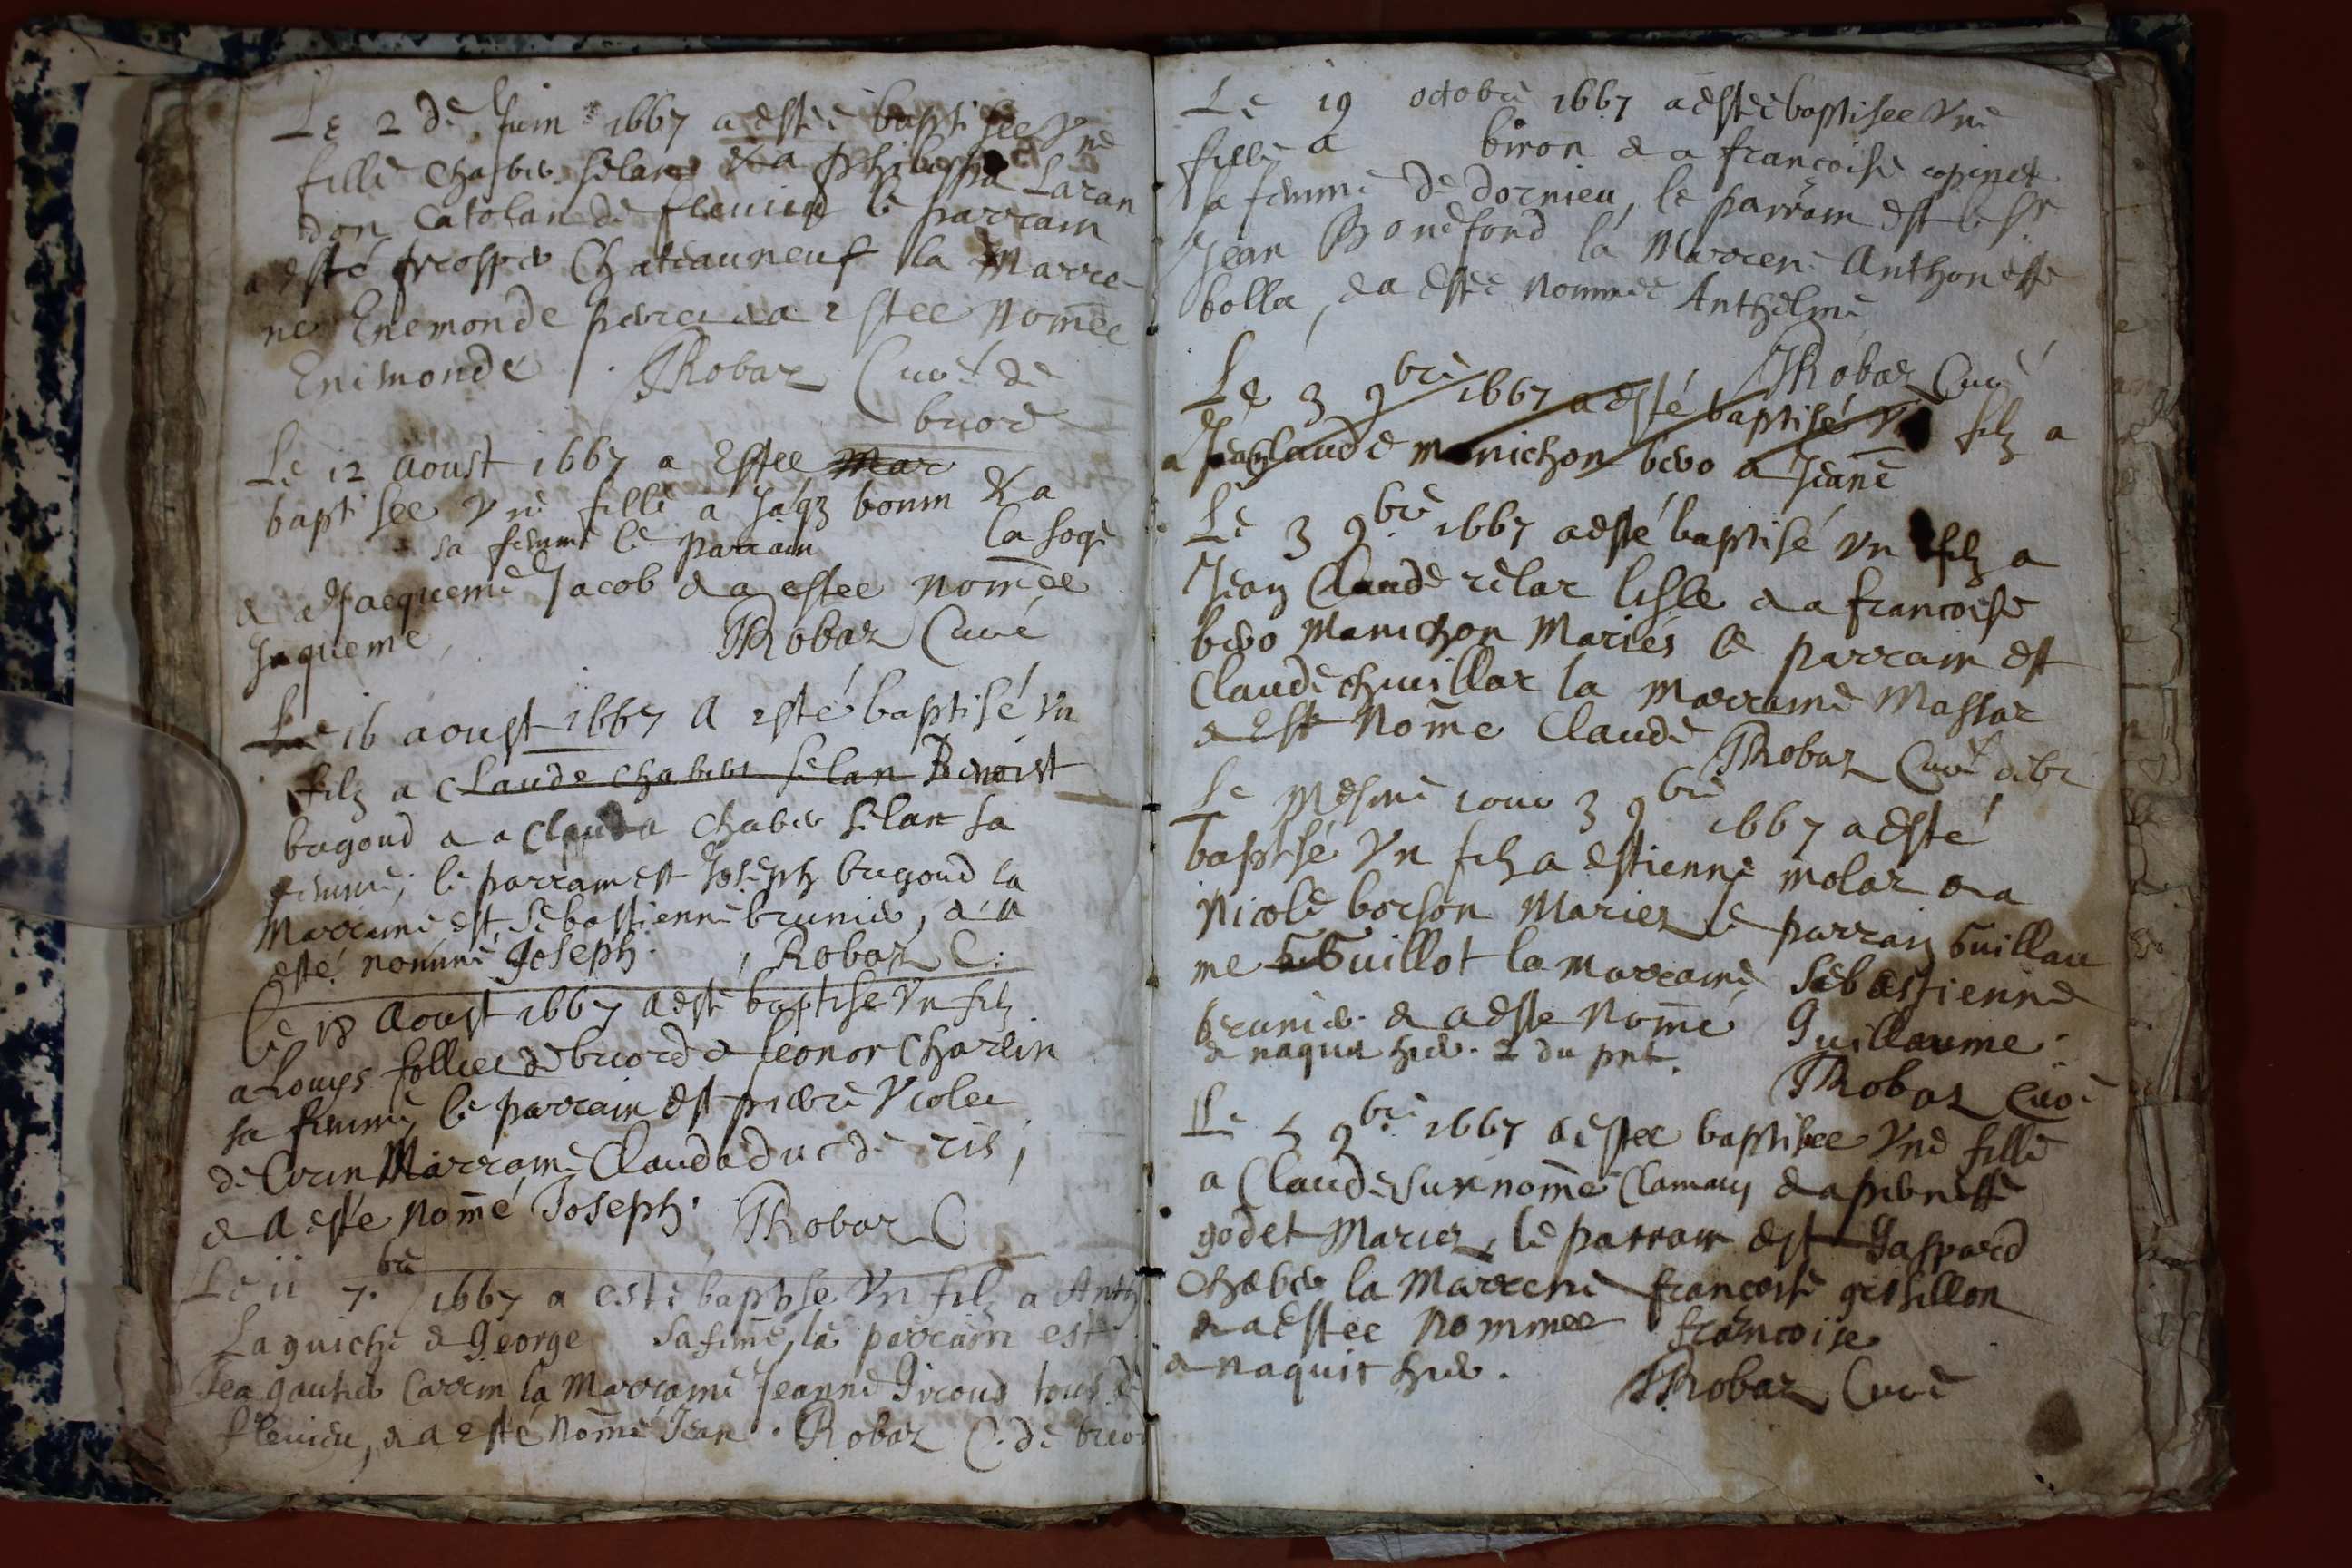 Le 2 de Juin 1667 a estée baptisee Vne
fille chaber selan & a philippa Laran
don catolan de fleuieu le parrain
a esté prosper Chateauneuf la Marre-
ne Enemonde & a estee nomēe
Enimonde . JRobaz Curé de
briord
Le 12 Aoust 1667 a Estee Mar
baptisee Vne fille a Jaqz bonin & a
sa femme le parrain la soge
& a Jacqueme Jacob & a estee nomēe
Jaqueme, JRobaz Curé
Le 16 aoust 1667 A esté baptisé vn
filz a Claude chaber selan Benoist
bugoud & a Clauda chaber selan sa
femme, le parrain est Joseph bugoud la
Marraine est Sebastienne brunier, & a
esté nommé Joseph. , Robaz C.
Le 18 Aoust 1667 a esté baptisé Vn filz
a Louys follier de briord & leonor Charlin
sa femme, le parrain est pierre Violer
de Marraine Clauda duc de ris,
& a esté nomē Joseph. JRobaz C
Le ii 7.bre 1667 a esté baptisé Vn filz a Anth
Laguiche & George sa fēme, le parrain est
Jea gautier Carrin la Marraine Jeanne Giroud tous de
fleuieu, & a esté nomē Jean . Robaz C. de brior
Le 19 octobre 1667 a estée baptisee Vne
fille a biron & a françoise copinet
sa femme de dornieu, le parrain est le Sr
Jean Bonefond la Marrene Anthoneste
bolla, & a estée nommée Anthelme
JRobaz Curé
Le 3 9bre 1667 a esté baptisé vn filz a
a Jean Claude manichon bero a Jeane
Le 3 9bre 1667 a esté baptisé vn filz a
Jean Claude relar lisle & a francoise
bero Manichon Mariés le parrain est
Claude chuillar la Marraine Massar
& Est Nomē Claude JRobaz Curé de br
Le Mesme iour 3 9bre 1667 a esté
baptisé Vn filz a estienne molar & a
Nicole borson Mariez le parrain Guillau
me Guillot la Marraine Sebastienne
brunier & a esté Nomé Guillaume.
& naquit hier. 2 du pnt.
JRobaz Curé
Le 5 9bre 1667 a estee baptisee Vne fille
a Claude surnomē Clamary & a perneste
godet Mariez, le parrain est Gaspard
Chaber la Marrene francoise grisillon
& a estee nommee francoise
& naquit hier.
JRobaz Curé